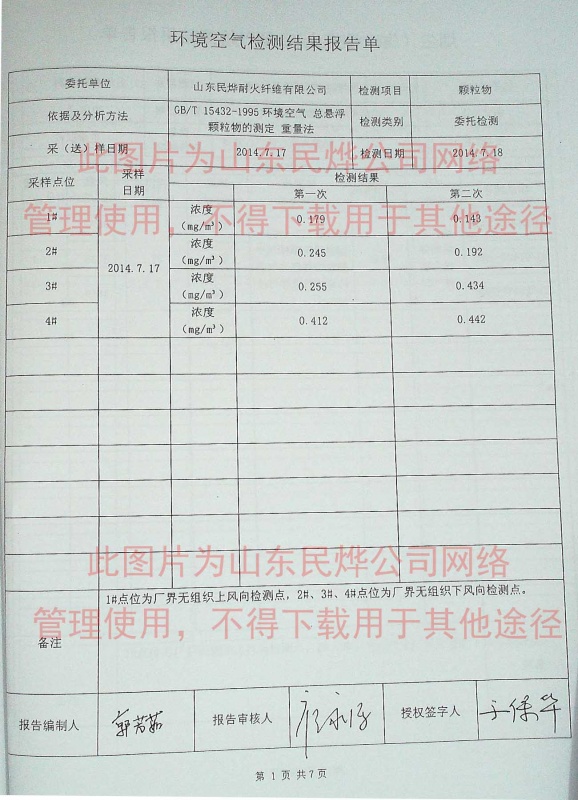 环境空气检测结果报告单
委托单位 山东民烨耐火纤维有限公司 检测项目 颗粒物
依据及分析方法 GB/T 15432-1995 环境空气 总悬浮
颗粒物的测定 重量法 检测类别 委托检测
采(送)样日期 2014.7.17 检测日期 2014.7.18
此图片为山东民烨公司网络
采样点位 采样
日期 检测结果
第一次 第二次
管理使用，不得下载用于其他途径
1# 浓度
(mg/m³) 0.179 0.143
2# 浓度
(mg/m³) 0.245 0.192
2014.7.17
3# 浓度
(mg/m³) 0.255 0.434
4# 浓度
(mg/m³) 0.412 0.442
此图片为山东民烨公司网络
1#点位为厂界无组织上风向检测点，2#、3#、4#点位为厂界无组织下风向检测点。
管理使用，不得下载用于其他途径
备注
报告编制人 报告审核人 授权签字人
第 1 页 共7页